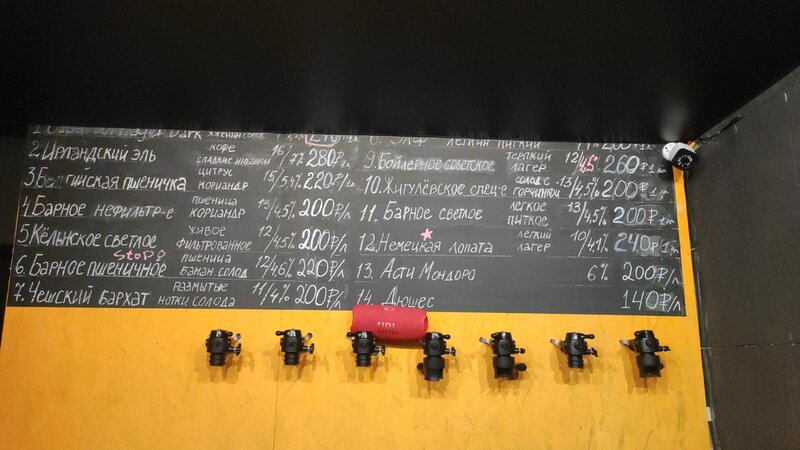 2. Ирландский эль кофе сладкие 16/7% 280₽/л
3. пшеничка цитрус кориандр 15/5,4% 220₽/л
4. Барное нефильтр-е пшеница кориандр 13/4,5% 200₽/л
5. Кёльнское светлое живое фильтрованное 12/4,5% 200₽/л
STOP!
6. Барное пшеничное пшеница банан солод 12/4,6% 220₽/л
7. Чешский бархат размытые нотки солода 11/4% 200₽/л
9. советское терпкий лагер 12/4,5% 260₽
10. Жигулёвское спец-е солод с горчинкой 13/4,5% 200₽
11. Барное светлое легкое питкое 13/4,5% 200₽
12. Немецкая лопата лёгкий лагер 10/4,1% 240₽
13. Асти Мондоро 6% 200₽/л
14. Дюшес 140₽/л
JBL